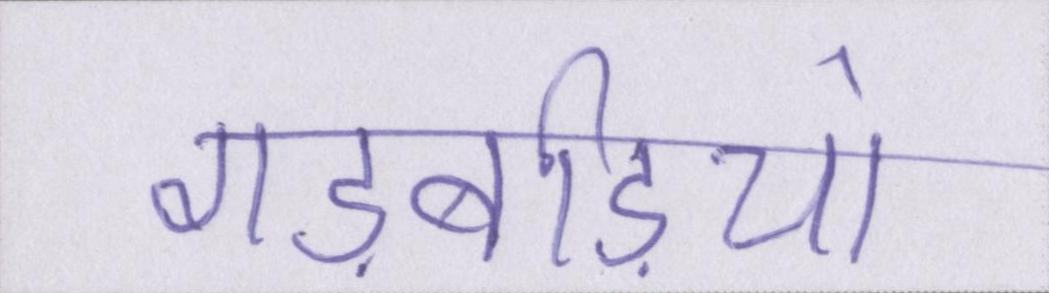 गड़बड़ियां